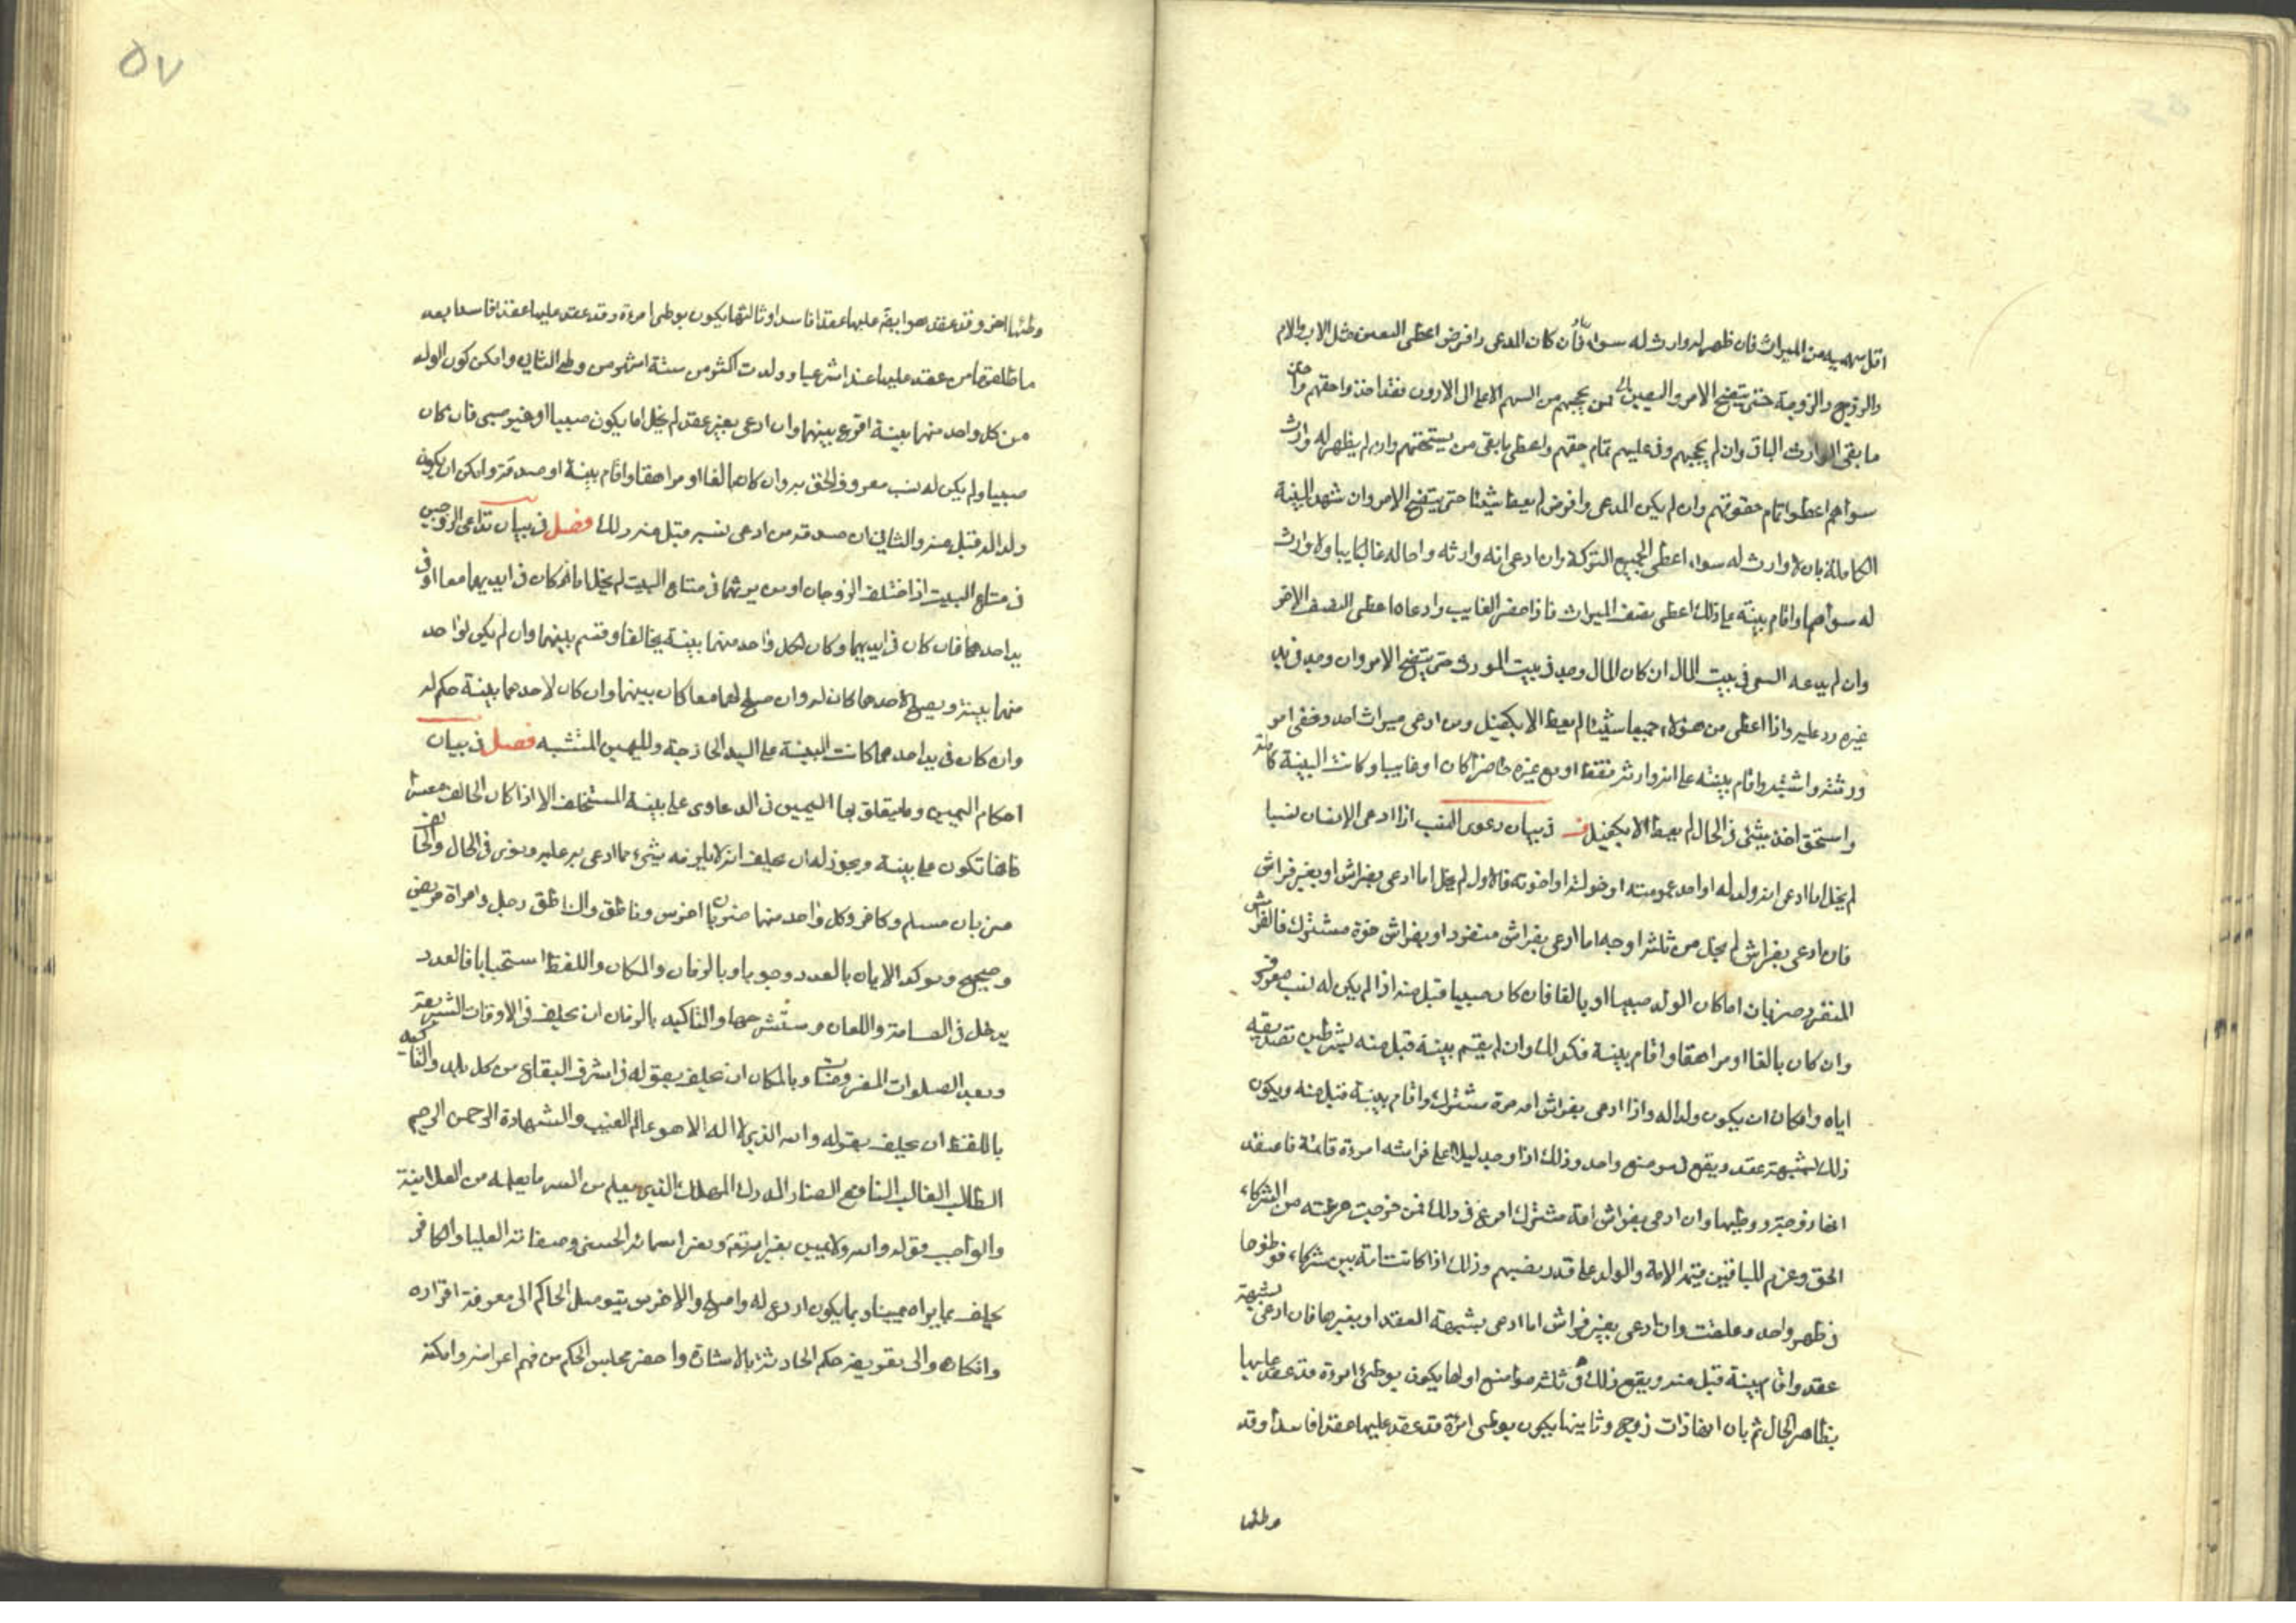 اقل سهميه من الميراث فان ظهر له وارث له سواه فان كان المدعى ذا فرض اعطى النصف مثل الاب والام
والزوج والزوجة حتى يتضح الامر واليقين فمن يحجبهم من السهم الاعلى الى الادون فقد اخذوا حقهم وحاز
ما بقى الوارث الباقى وان لم يحجبهم وفى عليهم تمام حقهم واعطى ما بقى من يستحقهم وان لم يظهر له وارث
سواهم اعطوا تمام حقوقهم وان لم يكن المدعى ذا فرض لم يعط شيئا حتى يتضح الامر وان شهد البينة
الكاملة بان لا وارث له سواه اعطى الجميع التركة وان ادعى انه وارثه واخا له غالبا غايبا ولا وارث
له سواهما واقام بينة على ذلك اعطى نصف الميراث فاذا حضر الغايب وادعاه اعطى النصف الاخر
وان لم يدعه السمى فى بيت المال ان كان المال وجد فى بيت المورث حتى يتضح الامر وان وجد فى يد
غيره رد عليه واذا اعطى من هؤلاء جميعا شيئا لم يعط الا بكفيل ومن ادعى ميراث احد وخفى امر
ورثته واشتبه واقام بينته على انه وارثه فقط او مع غيره حاضرا كان او غايبا وكانت البينة كاملة
واستحق اخذ شيئ فى الحال لم يعط الا بكفيل فـ فى بيان دعوى النسب اذا ادعى الانسان نسبا
لم يخل اما ادعى انه ولد له او احد عمومته او خولته او اخوته فالاول لم يخل اما ادعى بفراش او بغير فراش
فان ادعى بفراش لم يخل من ثلثه اوجه اما ادعى بفراش منفرد او بفراش حرة مشترك فالفراش
المنفرد ضربان اما كان الولد صبيا او بالغا فان كان صبيا قبل منه اذا لم يكن له نسب معروف
وان كان بالغا او مراهقا واقام بينة فكذلك وان لم يقم بينة قبل منه بشرطين تصديقه
اياه وامكان ان يكون ولدا له واذا ادعى بفراش امه حرة مشترك واقام بينة قبل منه ويكون
ذلك لشبهة عقد ويقع فى موضع واحد وذلك اذا وجد ليلا على فراشه امرءة قائمة فاعتقد
انها زوجته ووطيها وان ادعى بفراش امة مشترك اقرع فى ذلك فمن خرجت قرعته من الشركاء
الحق وغرم للباقين قيمة الامة والولد على قدر نصيبهم وذلك اذا كانت امة بين شركاء فوطؤها
فى طهر واحد وعلقت وان ادعى بغير فراش اما ادعى بشبهة العقد او بغيرها فان ادعى بشبهة
عقد واقام بينة قبل منه ويقع ذلك فى ثلثه مواضع اولها يكون بوطئ امرءة قد عقد عليها
بظاهر الحال ثم بان انها ذات زوج وثانيها يكون بوطى امرءة قد عقد عليها عقدا فاسدا وقد
وطئها
وطئها اخر وقد عقد هو ايضا عليها عقدا فاسدا وثالثها يكون بوطى امرءة وقد عقد عليها عقدا فاسدا بعد
ما طلقها من عقد عليها عقدا شرعيا وولدت اكثر من ستة اشهر من وطى الثانى وامكن كون الولد
من كل واحد منهما بينة اقرع بينهما وان ادعى بغير عقد لم يخل اما يكون صبيا او غير صبى فان كان
صبيا ولم يكن له نسب معروف الحق به وان كان بالغا او مراهقا واقام بينة او صدقه وامكن ان يكون
ولدا له قبل منه والثانى ان صدقه من ادعى نسبه قبل منه ذلك فصل فى بيان تداعى الزوجين
فى متاع البيت اذا اختلف الزوجان او من يرثهما فى متاع البيت لم يخل اما كان فى ايديهما معا او فى
يد احدهما فان كان فى ايديهما وكان لكل واحد منهما بينة تحالفا وقسم بينهما وان لم يكن لواحد
منهما بينة ويصلح لاحدهما كان له وان صلح لهما معا كان بينهما وان كان لاحدهما بينة حكم له
وان كان فى يد احدهما كانت البينة على اليد الخارجة واليمين المتشبه فصل فى بيان
احكام اليمين وما يتعلق بها اليمين فى الدعاوى على بينة المستحلف الا اذا كان الحالف معسرا
فانها تكون على بينة ويجوز له ان يحلف انه لا يلزمه شيئ مما ادعى به عليه وينوى فى الحال والحالف
ضربان مسلم وكافر وكل واحد منهما ضربان اخرس وناطق والناطق رجل وامراة مريض
وصحيح ويوكد الايمان بالعدد وجوبا وبالزمان والمكان واللفظ استحبابا فالعدد
يدخل فى القسامة واللعان وسنشرحها والتاكيد بالزمان ان يحلف فى الاوقات الشريفة
وبعد الصلوات المفروضات وبالمكان ان يحلف بقوله فى اشرف البقاع من كل بلد والتاكيد
باللفظ ان يحلف بقوله والله الذى لا اله الا هو عالم الغيب والشهادة الرحمن الرحيم
الطالب الغالب النافع الضار المدرك المهلك الذى يعلم من السر ما يعلمه من العلانية
والواجب قوله والله ولا يمين بغير الله وبغير اسمائه الحسنى وصفاته العليا والكافر
يحلف بما يراه يمينا وبما يكون اردع له واصلح والاخرس يتوصل الحاكم الى معرفة اقراره
وانكاره والى تعريفه حكم الحادثة بالاشارة واحضر مجلس الحكم من فهم اغراضه وامكنه
٥٧